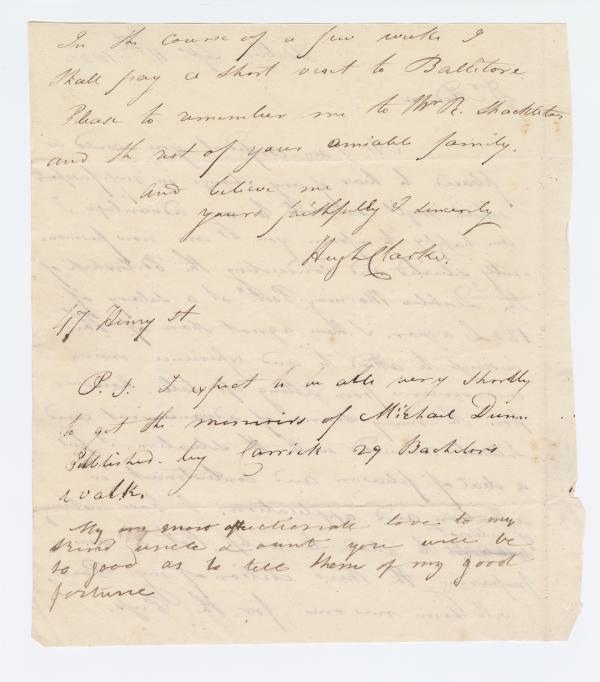 In the course of a few weeks I
shall pay a short visit to Ballitore.
Please to remember me to Mr R. Shackleton
and the rest of your amiable family.
and believe me
yours faithfully & sincerely
Hugh Clarke.
17 Henry st
P.S: I expect to be able very shortly
to get the memoirs of Michael Dunn
Published by Carrick 29 Bachelors
walk.
My most affectionate love to my
kind uncle & aunt you will be
so good as to tell them of my good
fortune